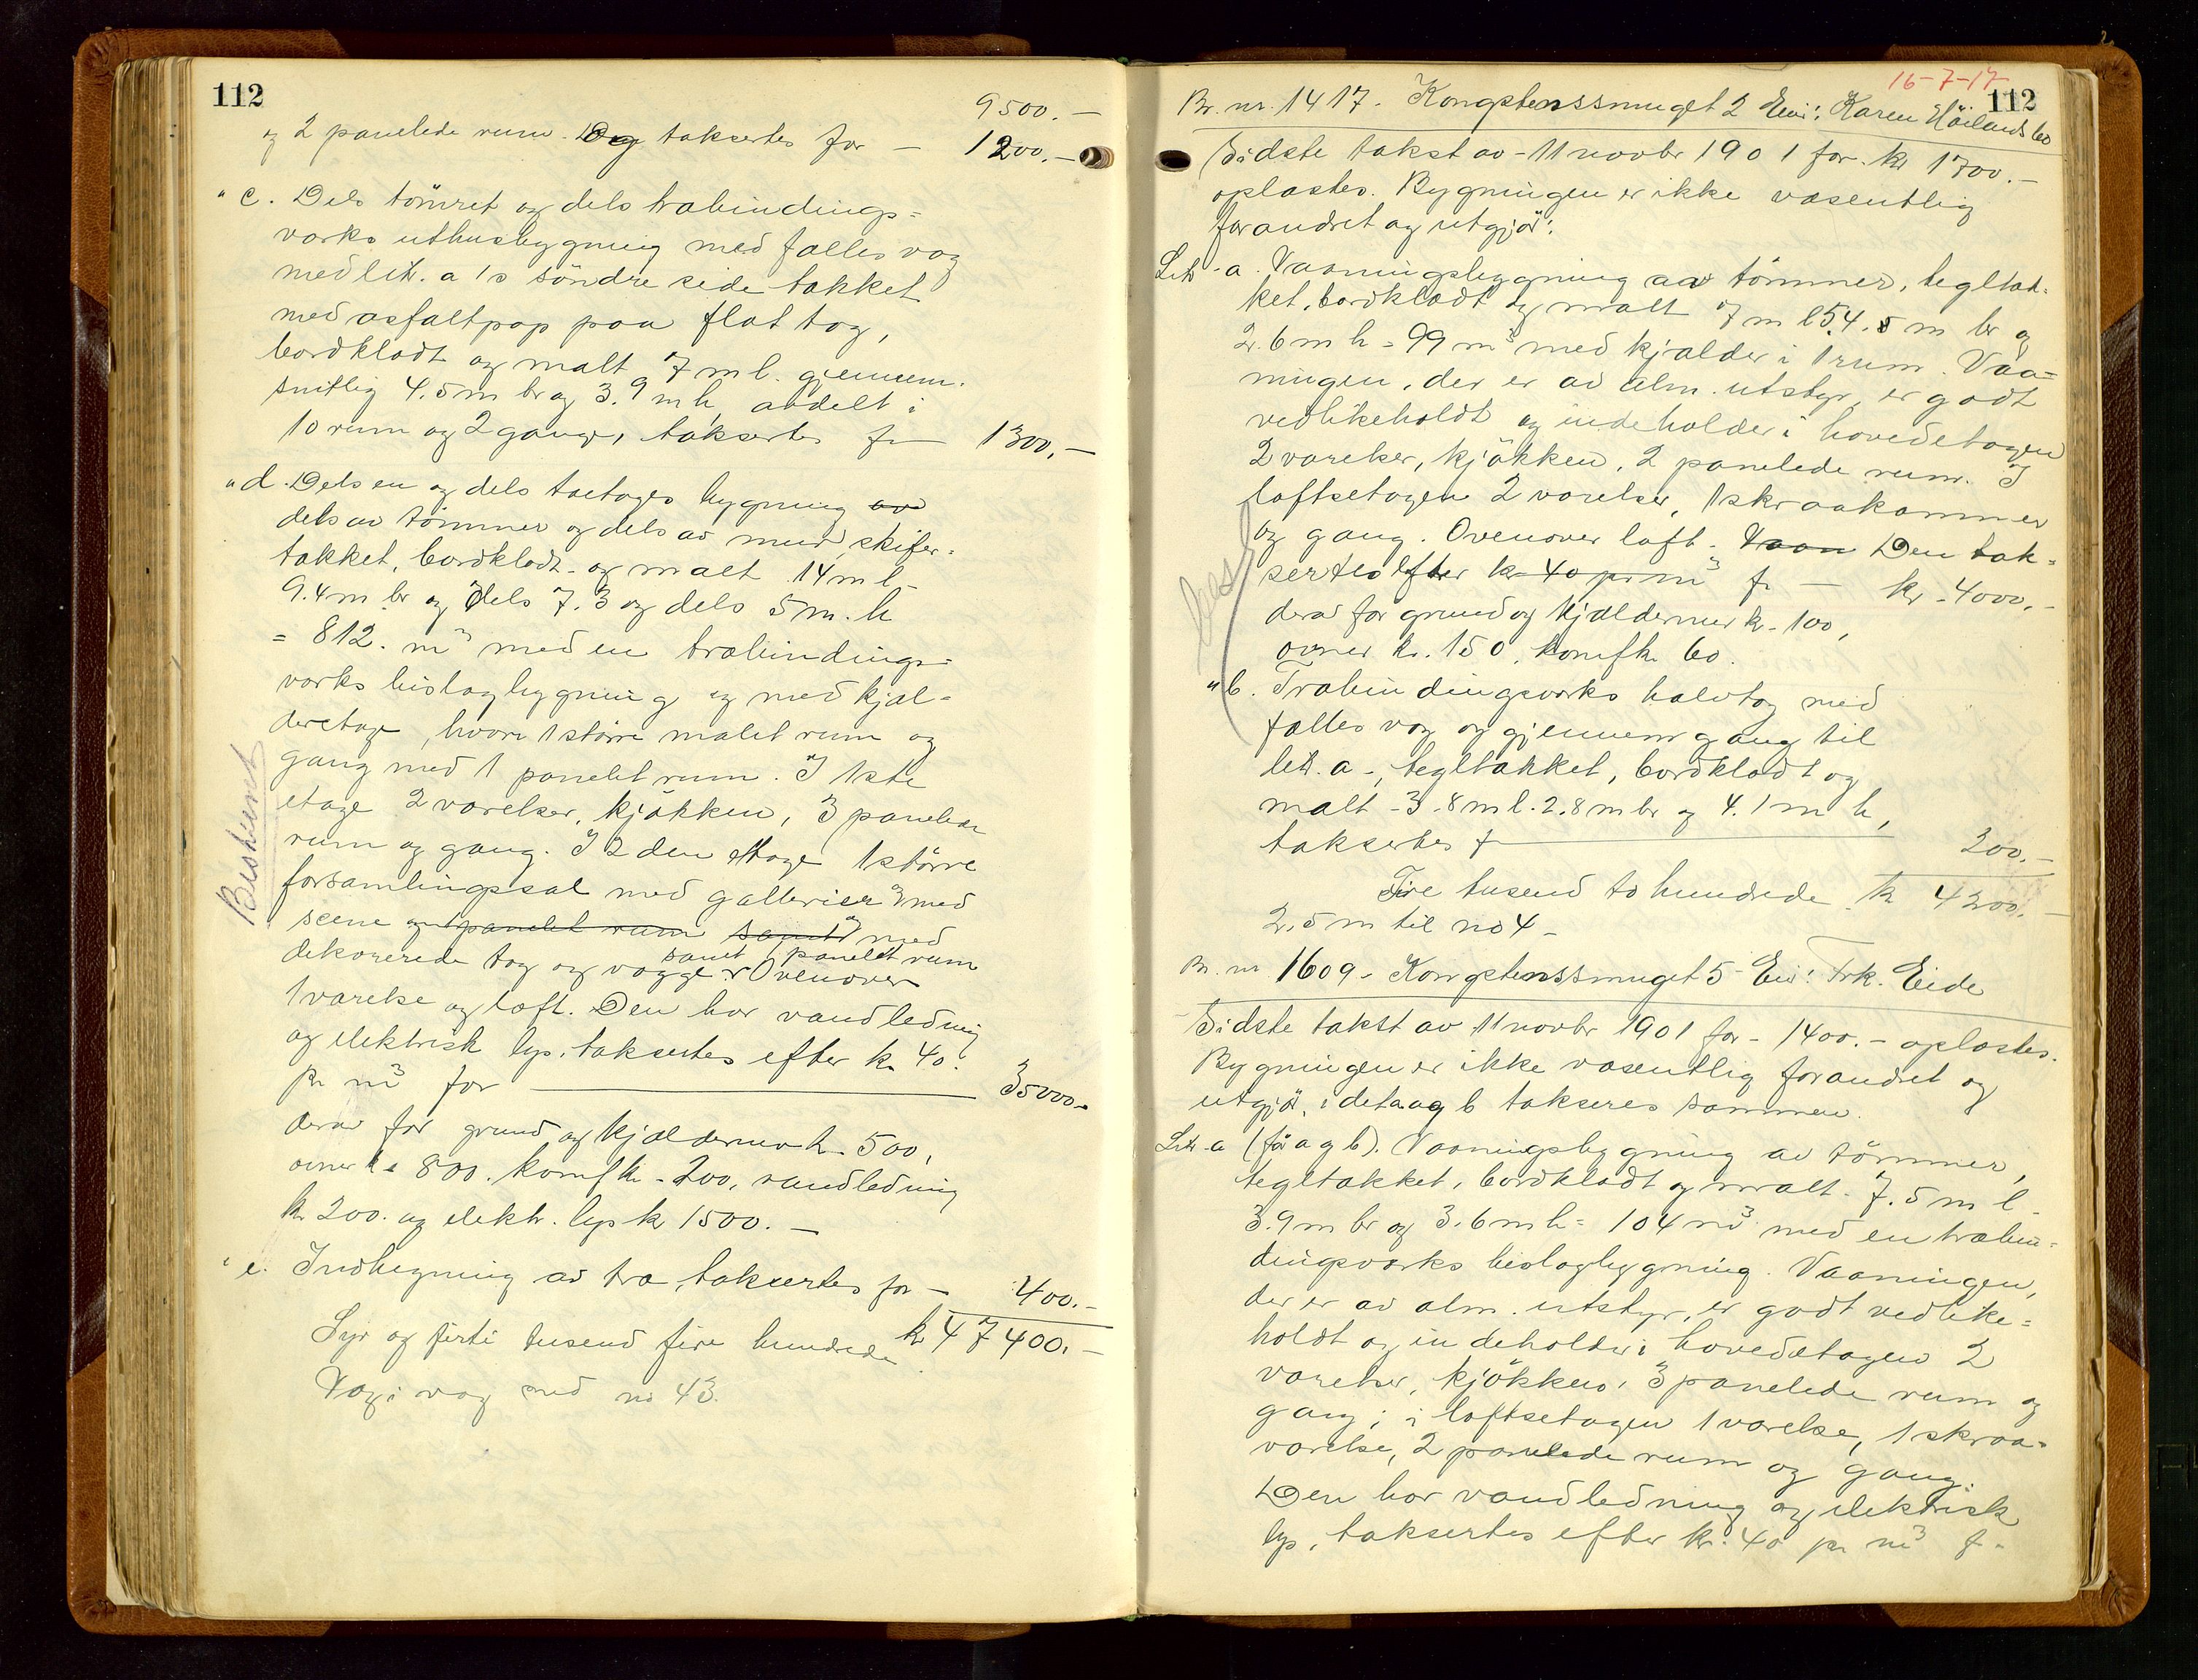 112
9500.-
og 2 panelede rum. Den taksertes for - 1200.-
" c. Dels tömret og dels træbindings=
verks uthusbygning med fælles væg
med litr. a 1s söndre side tækket
med asfaltpap paa flat tag,
bordklædt og malt 7 m l. gjennem-
snitlig 4.5 m br og 3.9 m h, avdelt i
10 rum og 2 gange, taksertes for 1300.-
" d. Dels en og dels toetages bygning av
dels av tömmer og dels av mur, skifer=
tækket, bordklædt og malt 14 m l-
9.4 m br og dels 7.3 og dels 5 m. h
= 812. m3 med en træbindings=
verks bislagbygning og med kjæl=
deretage, hvori 1 större malet rum og
gang med 1 panelet rum. I 1ste
etage 2 værelser, kjökken, 3 panelede
rum og gang. I 2den etage 1 större
forsamlingssal med gallerier og med
scene og 1 panelet rum samt med
samt 1 panelet rum
dekorerede tag og vægge. Ovenover
1 værelse og loft. Den har vandledning
og elektrisk lys, taksertes efter kr. 40.
pr m3 for 35000.-
Beskrevet
derav for grund og kjældermur kr. 500,
ovner kr. 800. komf kr. 200, vandledning
kr 200. og elektr. lys kr 1500.-
" e. Indhegning av træ, taksertes for - 400.-
Syv og firti tusend fire hundrede kr 47400.-
Væg i væg med no 43.
16-7-17
112
Br. nr. 1417. Kongstenssmuget 2 Eier: Karen Höilandsbo
Sidste takst av 11 novbr 1901 for kr 1700.-
oplæstes. Bygningen er ikke væsentlig
forandret og utgjör:
Litr. a. Vaaningsbygning av tömmer, tegltæk-
ket, bordklædt og malt 7 m l 5.4.5 m br og
2.6 m h = 99 m3 med kjælder i 1 rum. Vaa=
ningen, der er av alm. utstyr, er godt
vedlikeholdt og indeholder i hovedetagen
2 værelser, kjökken, 2 panelede rum. I
loftsetagen 2 værelser, 1 skraakammer
og gang. Ovenover loft. Vaan Den tak=
sertes efter kr 40 pr m3 for - kr. 4000.-
derav for grund og kjældermur kr. 100,
ovner kr. 150, komf kr. 60.
" b. Træbindingsverks halvtag med
fælles væg og gjennemgang til
litr. a., tegltækket, bordklædt og
malt - 3.8 m l. 2.8 m br og 4.1 m h,
taksertes for 200.-
Fire tusend to hundrede kr 4200.-
2,5 m til no 4-
Br. nr. 1609. Kongstenssmuget 5 Eier: Frk. Eide
Sidste takst av 11 novbr 1901 for - 1400.- oplæstes.
Bygningen er ikke væsentlig forandret og
utgjör, idet a og b takseres sammen.
Litr. a (för a og b). Vaaningsbygning av tömmer,
tegltækket, bordklædt og malt. 7.5 m l-
3.9 m br og 3.6 m h = 104 m3 med en træbin=
dingsverks bislagbygning. Vaaningen,
der er av alm. utstyr, er godt vedlike=
holdt og indeholder i hovedetagen 2
værelser, kjökken, 3 panelede rum og
gang; i loftsetagen 1 værelse, 1 skraa=
værelse, 2 panelede rum og gang.
Den har vandledning og elektrisk
lys, taksertes efter kr. 40 pr m3 for